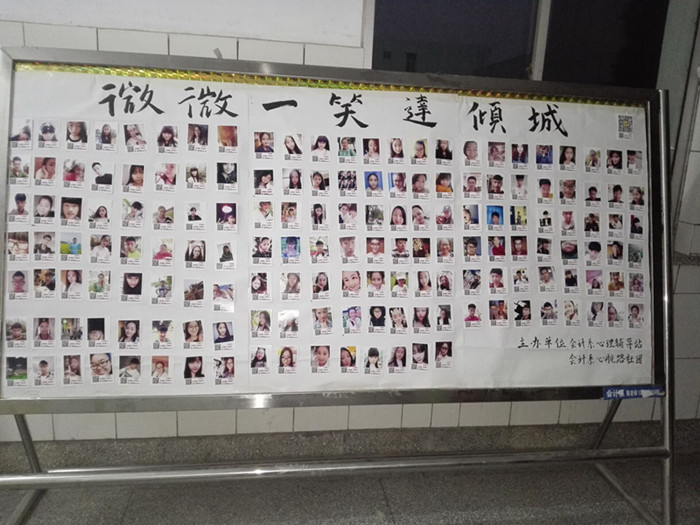 微微一笑達傾城
主办单位 会计系心理辅导站
会计系心晓路社团
会计系